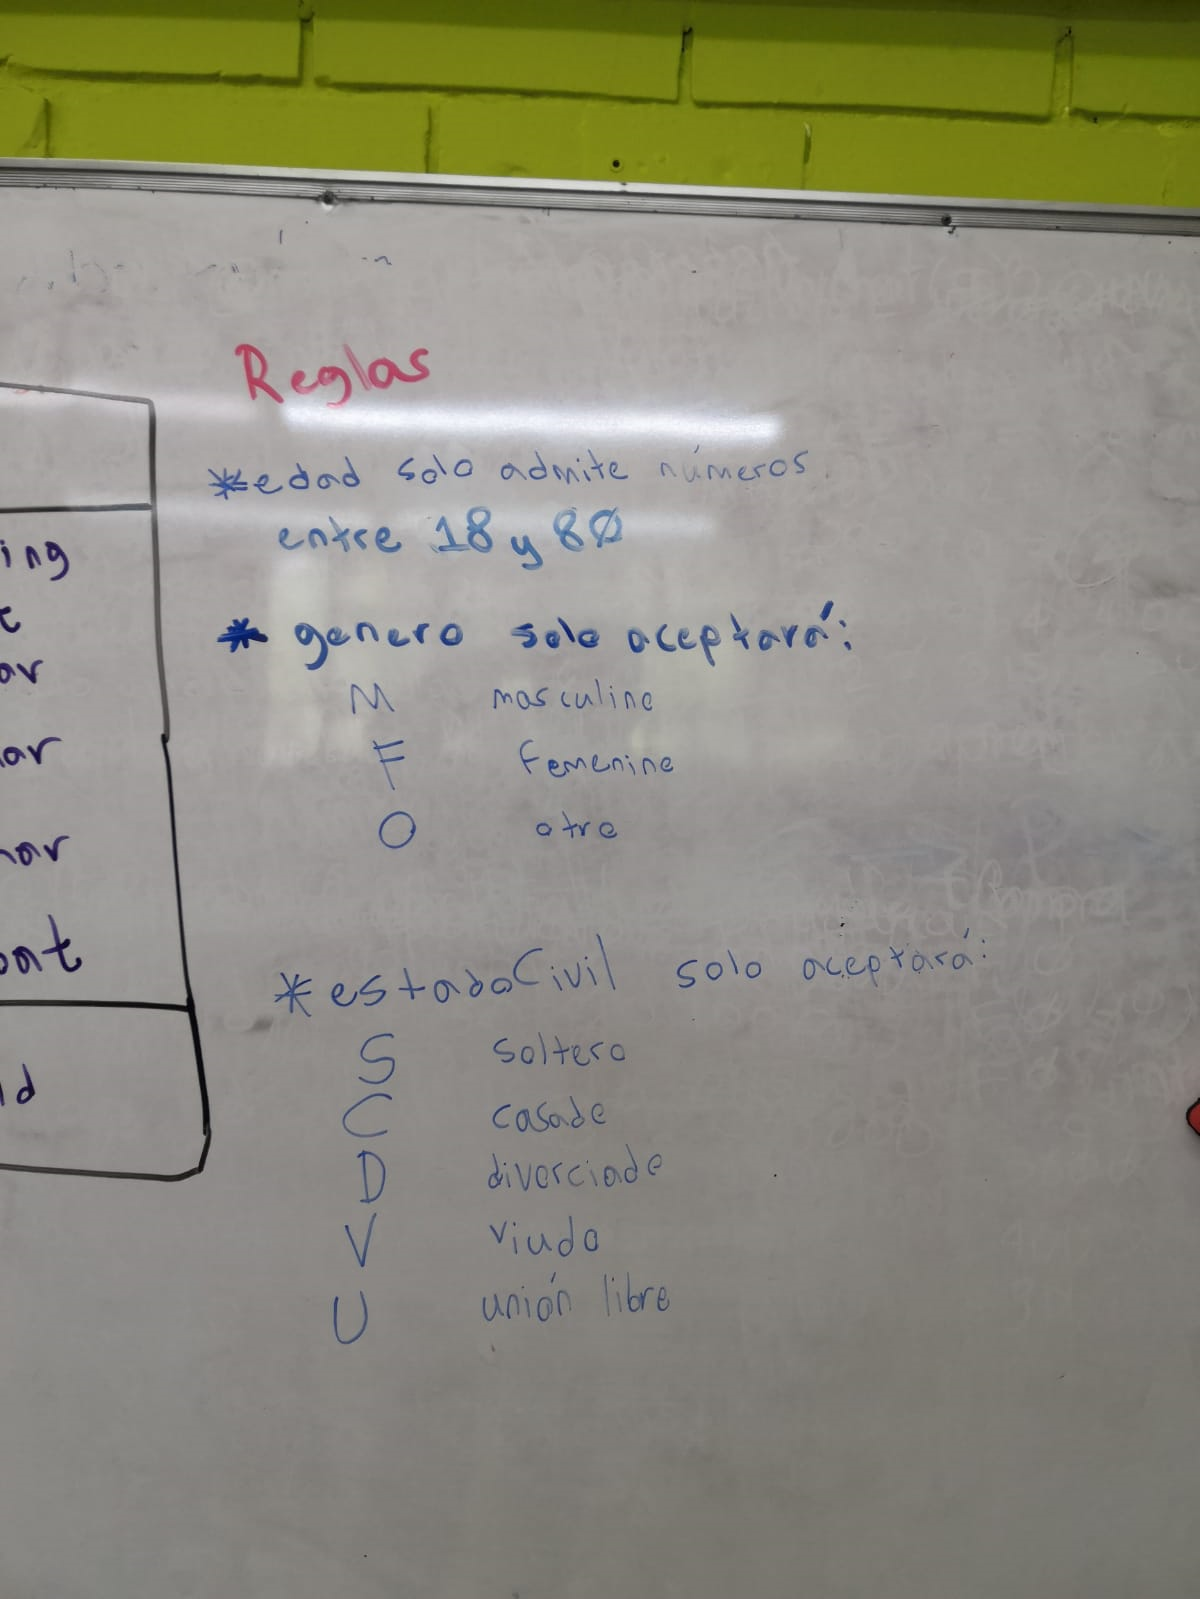 Reglas
*edad solo admite números
entre 18 y 80
* genero solo aceptará:
M masculino
F Femenino
O otro
*estadoCivil solo aceptará:
S soltero
C casado
D divorciado
V viudo
U unión libre
ing
ar
ar
nar
oat
ld